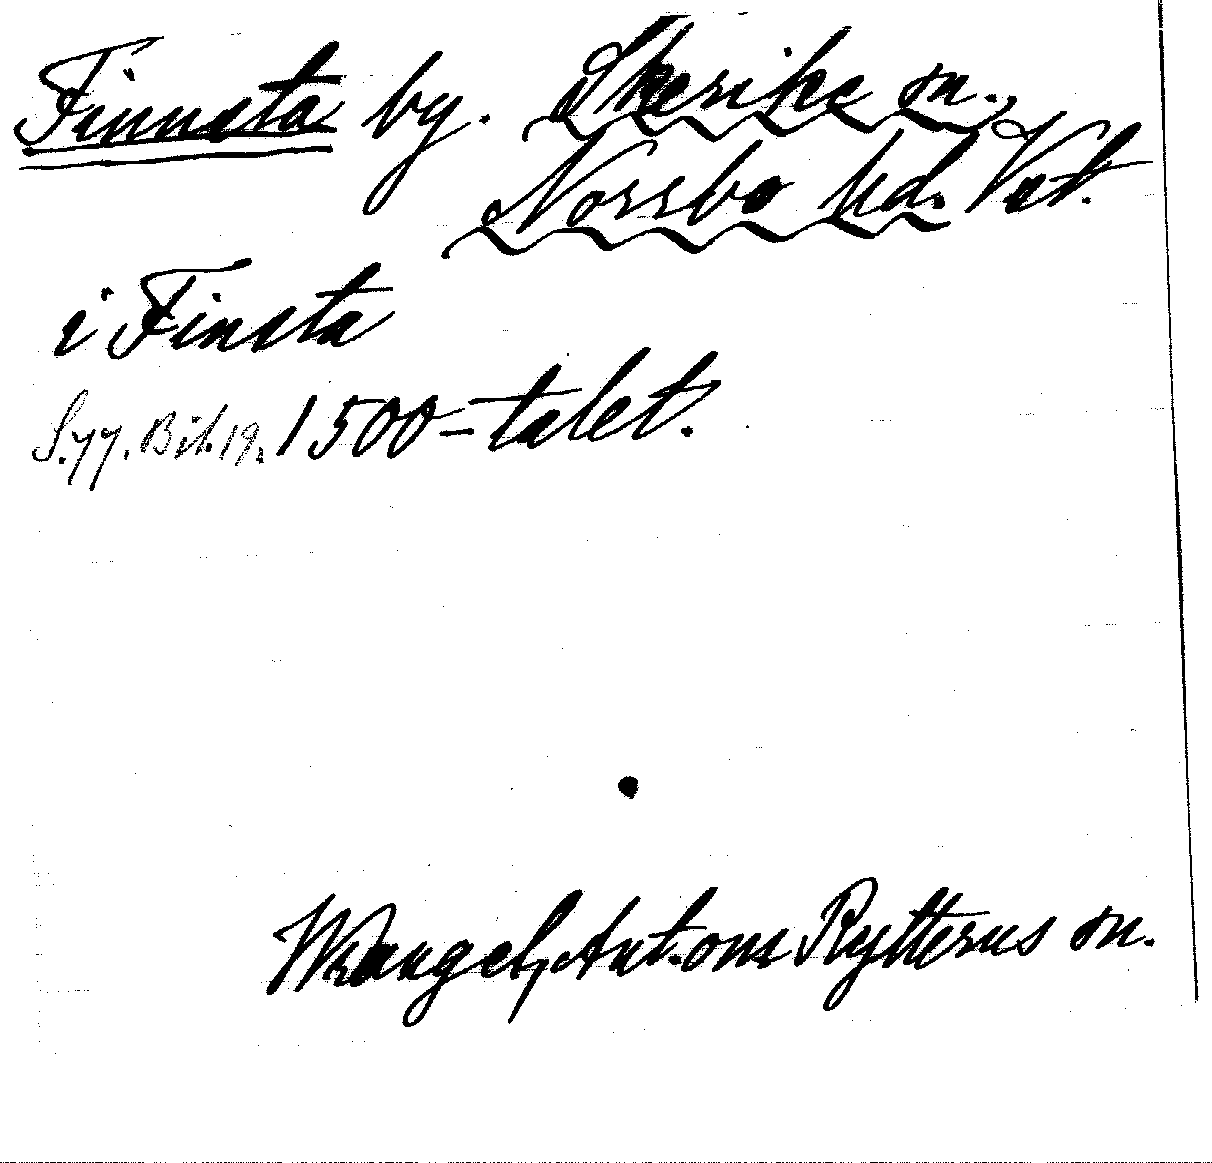 Finnsta by. Skerike sn.,
Norrbo hd. Vstl.
i Finsta
S.77. Bil. 19. 1500-talet.
Wrangel, Ant. om Rytterns sn.